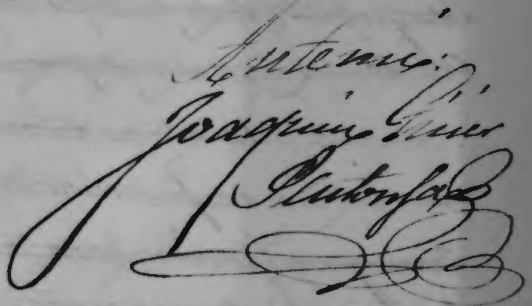 Ante mi.
Joaquin Giner